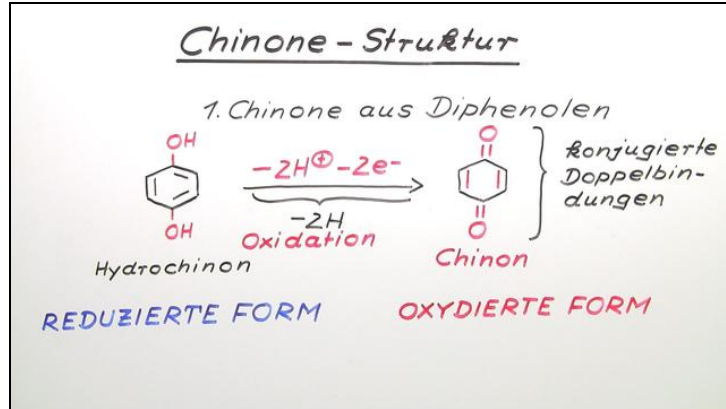 Chinone - Struktur
1. Chinone aus Diphenolen
OH
OH
Hydrochinon
-2H⊕ -2e-
-2H
Oxidation
O
O
Chinon
konjugierte
Doppelbin-
dungen
REDUZIERTE FORM
OXYDIERTE FORM